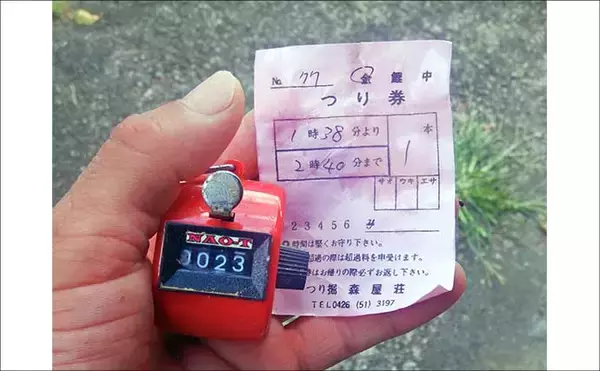 No. 77 金 鯉 中
つり券
1時38分より
2時40分まで
本
1
サオ ウキ エサ
23456
時間は堅くお守り下さい。
超過の際は超過料を申受けます。
はお帰りの際必ずお返し下さい。
つり堀 森屋荘
TEL0426 (51) 3197
NAO-T
0023